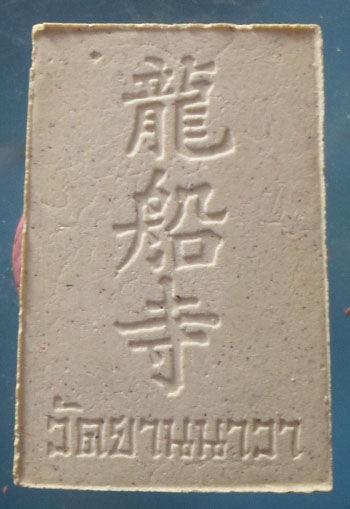 龍船寺
วัดยานนาวา